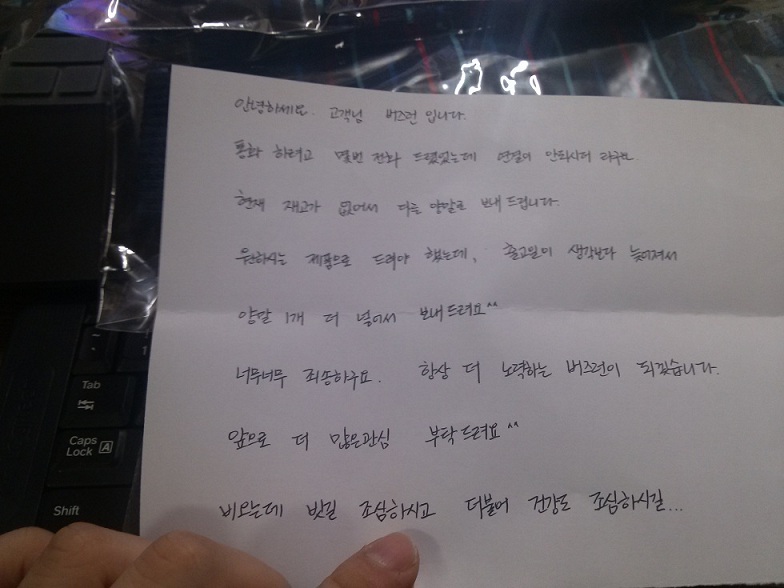 안녕하세요. 고객님 버즈런 입니다.
통화 하려고 몇번 전화 드렸었는데 연결이 안되시더라구요.
현재 재고가 없어서 다른 양말로 보내드립니다.
원하시는 제품으로 드려야 했는데, 출고일이 생각보다 늦어져서
양말 1개 더 넣어서 보내드려요^^
너무너무 죄송하구요. 항상 더 노력하는 버즈런이 되겠습니다.
앞으로 더 많은관심 부탁드려요^^
비오는데 빗길 조심하시고 더불어 건강도 조심하시길...
Tab
Caps
Lock A
Shift